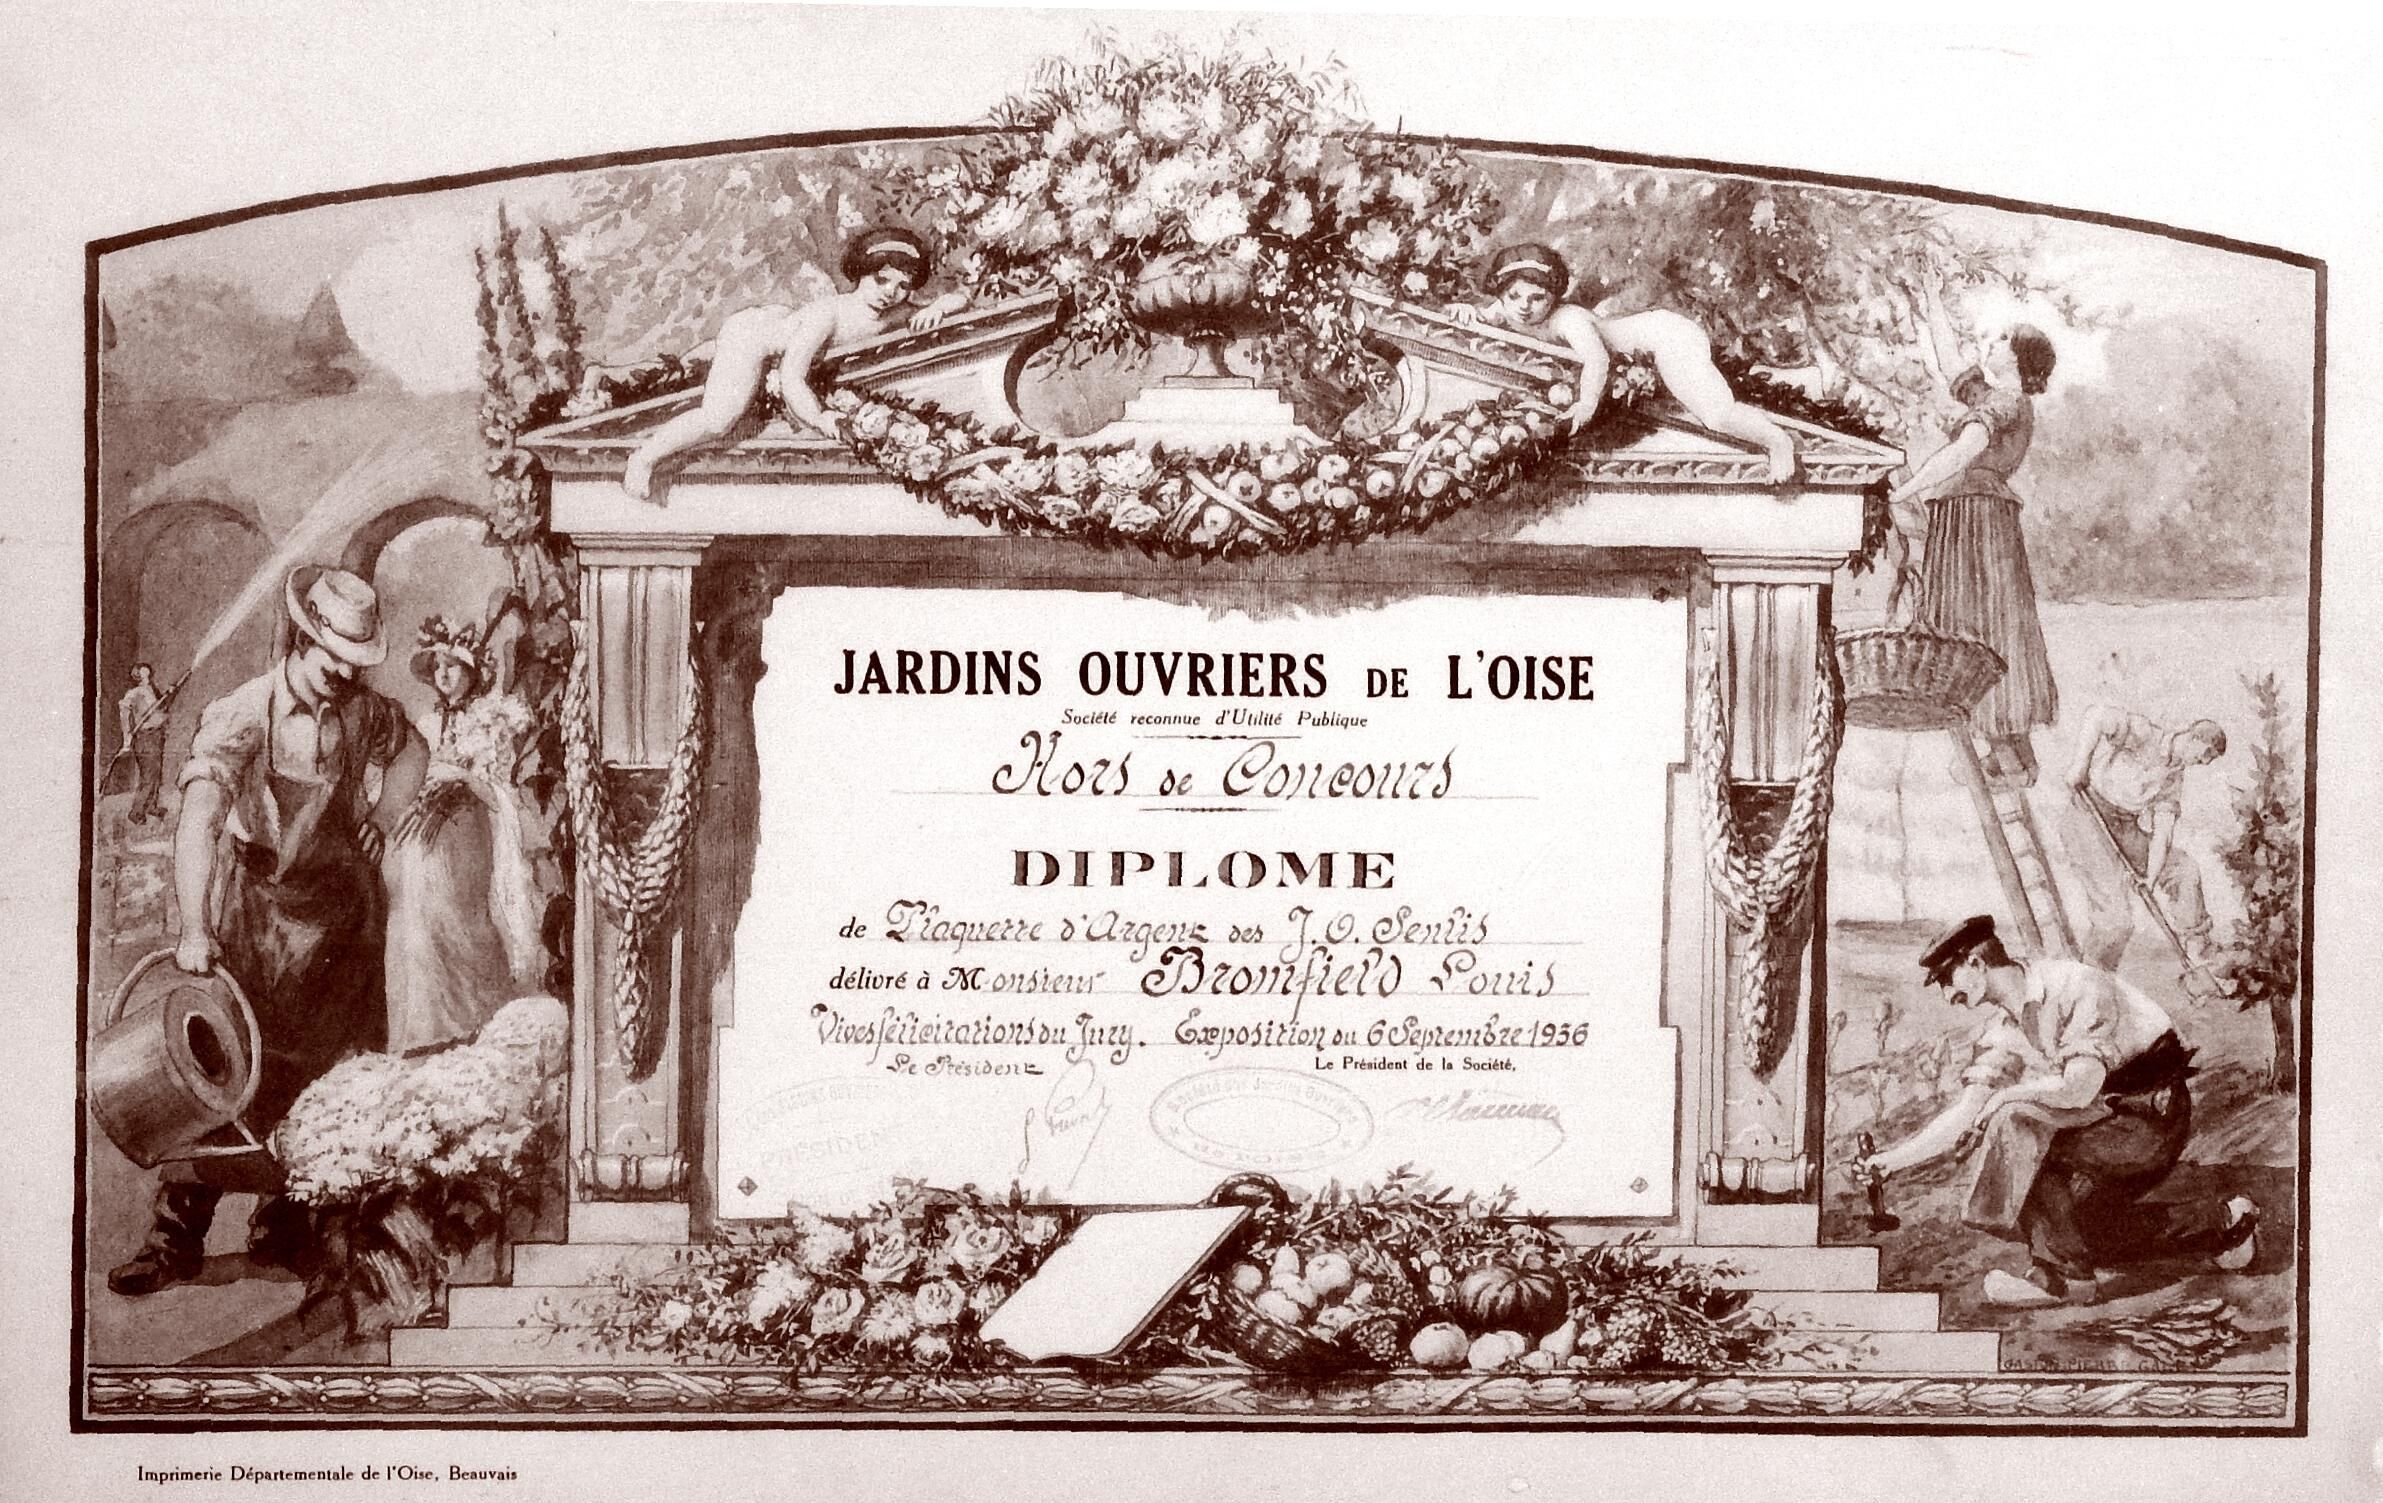 JARDINS OUVRIERS DE L'OISE
Société reconnue d'Utilité Publique
Hors de Concours
DIPLOME
de Plaquette d'Argent des J.O. Senlis
délivré à Monsieur Bromfield Louis
Vives félicitations du Jury. Exposition du 6 Septembre 1936
Le Président
Le Président de la Société,
Société des Jardins Ouvriers
PRÉSIDENT
GASTON PIERRE
Imprimerie Départementale de l'Oise, Beauvais